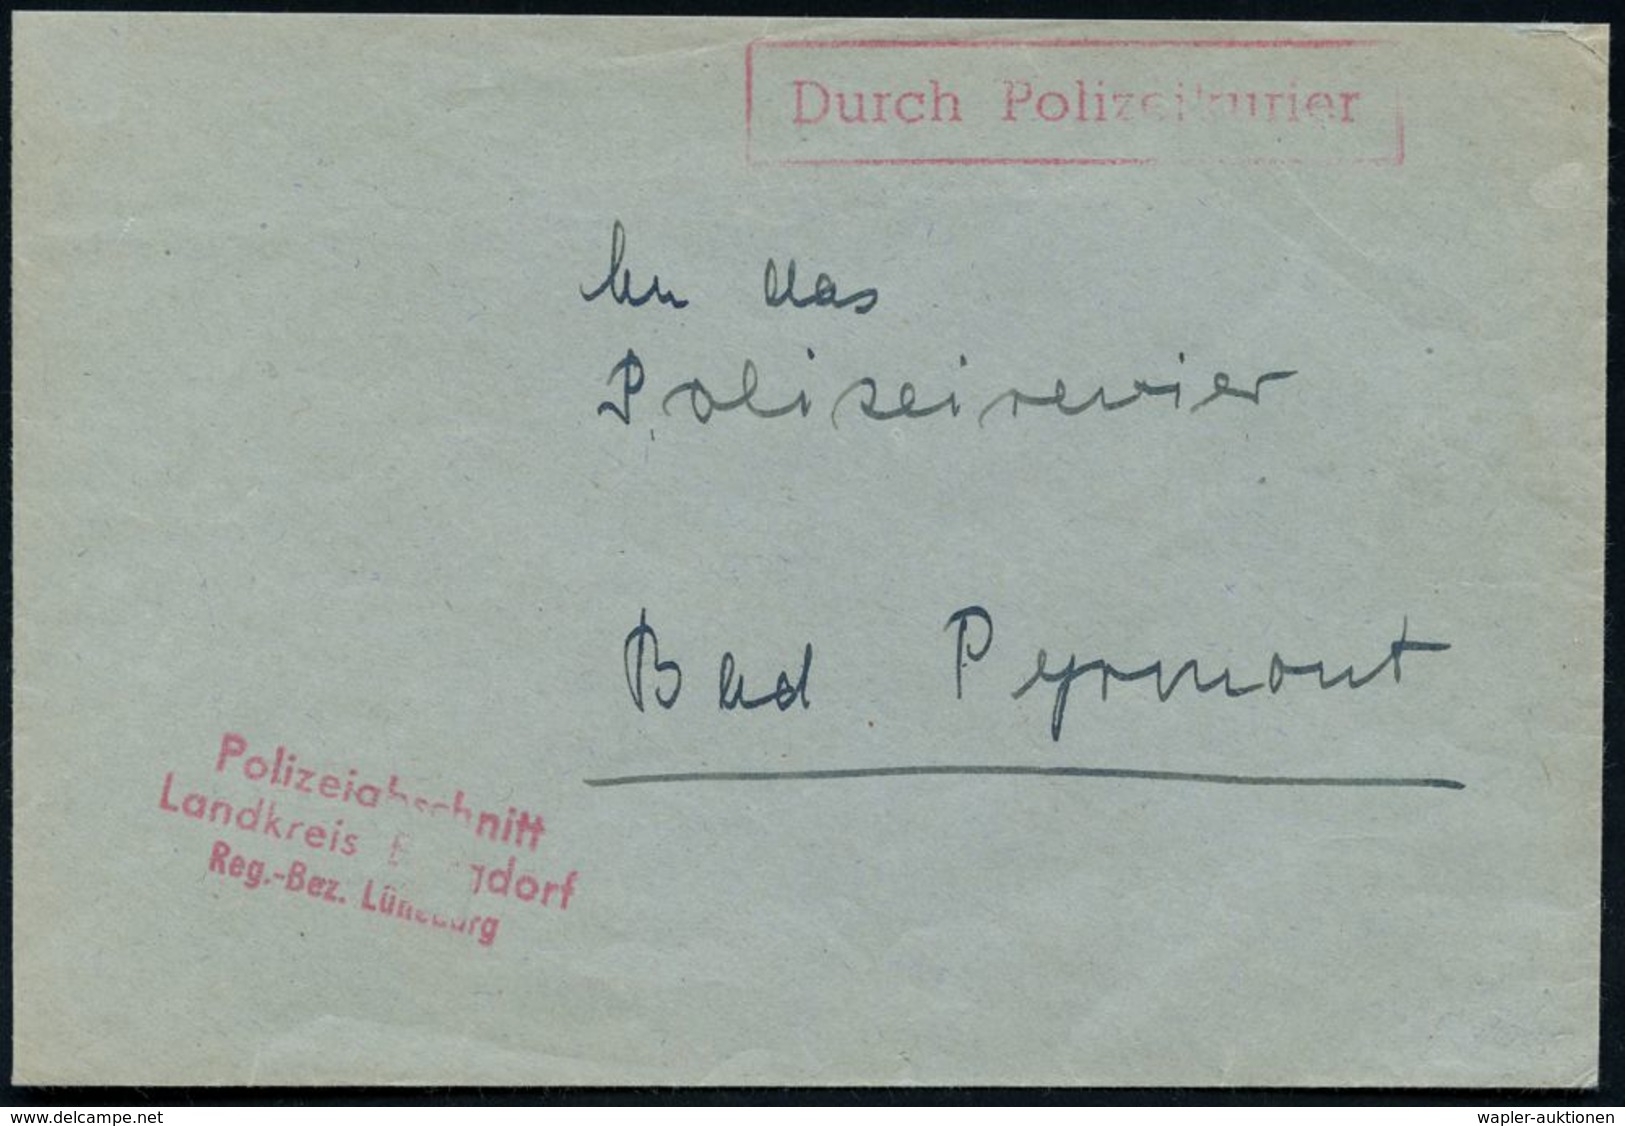 Durch Polizeikurier
An das
Polizeirevier
Bad Pyrmont
Polizeiabschnitt
Landkreis Burgdorf
Reg.-Bez. Lüneburg
www.delcampe.net
wapler-auktionen